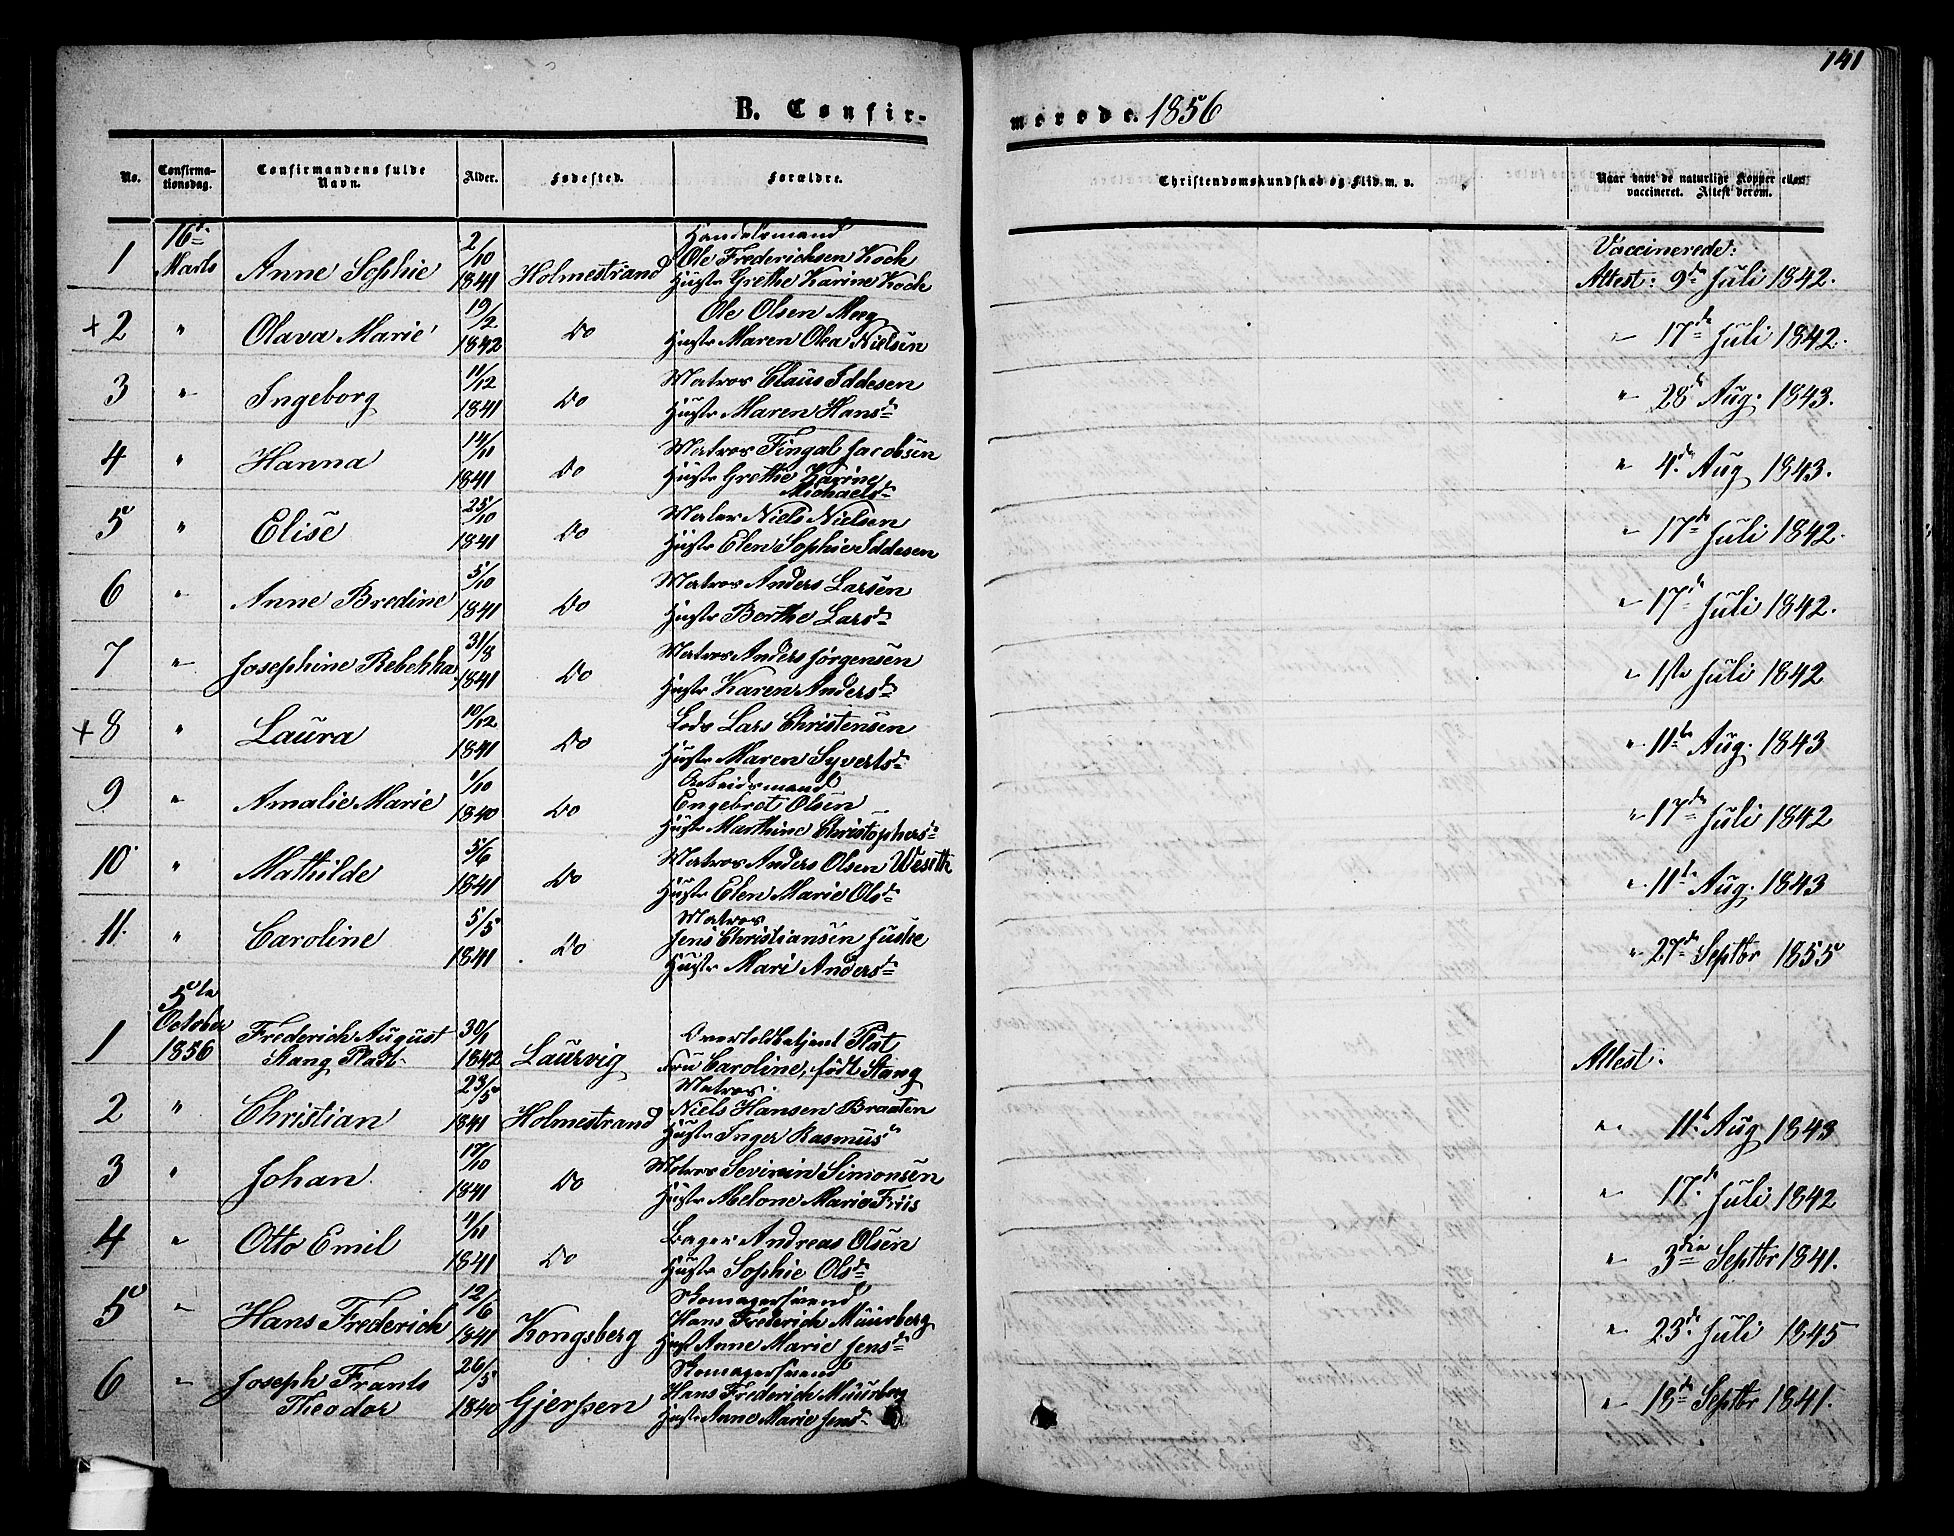 141
B. Confirmerede. 1856
No. Confirmationsdag. Confirmandens fulde Navn. Alder. Fødested. Forældre. Christendomskundskab og Flid m. v. Naar havt de naturlige Kopper eller vaccineret. Attest derom.
1 16de Marts Anne Sophie 2/10 1841 Holmestrand Handelsmand Ole Frederichsen Koch Hustr Grethe Karine Koch Vaccinerede: Attest: 9de Juli 1842.
+2 " Olava Marie 19/2 1842 Do Ole Olsen Moeg Hustr Maren Olea Nielsen " 17de Juli 1842.
3 " Ingeborg 11/12 1841 Do Matros Claus Iddesen Hustr Maren Hansd " 28de Aug. 1843.
4 " Hanna 14/11 1841 Do Matros Fingal Jacobsen Hustr Grethe Karine Michaelsd " 4de Aug 1843.
5 " Elise 25/10 1841 Do Maler Niels Nielsen Hustr Elen Sophie Iddesen " 17de Juli 1842.
6 " Anne Bredine 5/10 1841 Do Matros Anders Larsen Hustr Berthe Larsd " 17de Juli 1842.
7 " Josephine Rebekka 31/8 1841 Do Matros Anders Jørgensen Hustr Karen Andersd " 1ste Juli 1842
+8 " Laura 10/12 1841 Do Lods Lars Christensen Hustr Maren Syvertsd " 11te Aug. 1843
9 " Amalie Marie 1/10 1840 Do Arbeidsmand Engebret Olsen Hustr Marthine Christophersd " 17de Juli 1842
10 " Mathilde 5/6 1841 Do Matros Anders Olsen Weseth Hustr Elen Marie Olsd " 11te Aug. 1843
11. " Caroline 5/5 1841 Do Matros Jens Christiansen Juske Hustr Mari Andersd " 27de Septbr 1855
1 5te October 1856 Frederich August Stang Platt 30/1 1842 Laurvig Overtoldbetjent Plat Fru Caroline, født Stang Attest:
2 " Christian 23/5 1841 Holmestrand Matros Niels Hansen Braaten Hustr Inger Rasmusd " 11te Aug 1843
3 " Johan 17/10 1841 Do Matros Severin Simonsen Hustr Melone Marie Friis " 17de Juli 1842
4 " Otto Emil 1/11 1841 Do Bager Andreas Olsen Hustr Sophie Olsd " 3die Septbr 1841.
5 " Hans Frederich 12/6 1841 Kongsberg Skomagersvend Hans Frederich Muurberg Hust Anne Marie Jensd " 23de Juli 1845
6 " Joseph Frants Theodor 26/5 1840 Gjerpen Skomagersvend Hans Frederich Muurberg Hustr Anne Marie Jensd " 18de Septbr 1841.